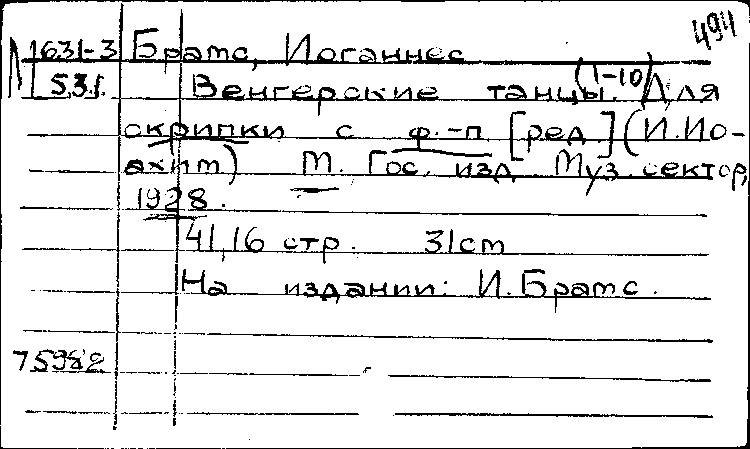 494
1631-3 Брамс, Иоганнес
531. Венгерские танцы. (1-10) Для
скрипки с ф.-п. [ред.] (И. Ио-
ахим) М. Гос. изд. Муз. сектор,
1928.
41, 16 стр. 31 cm
На издании: И. Брамс.
75982